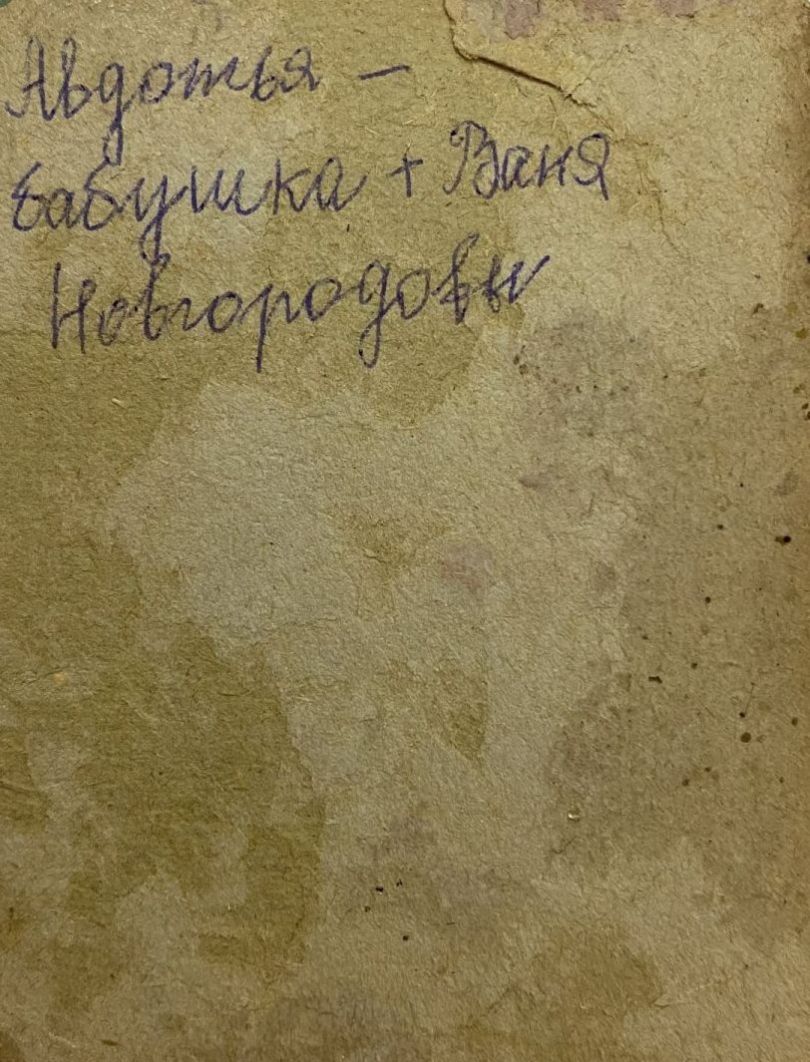 Авдотья –
бабушка + Ваня
Новгородовы